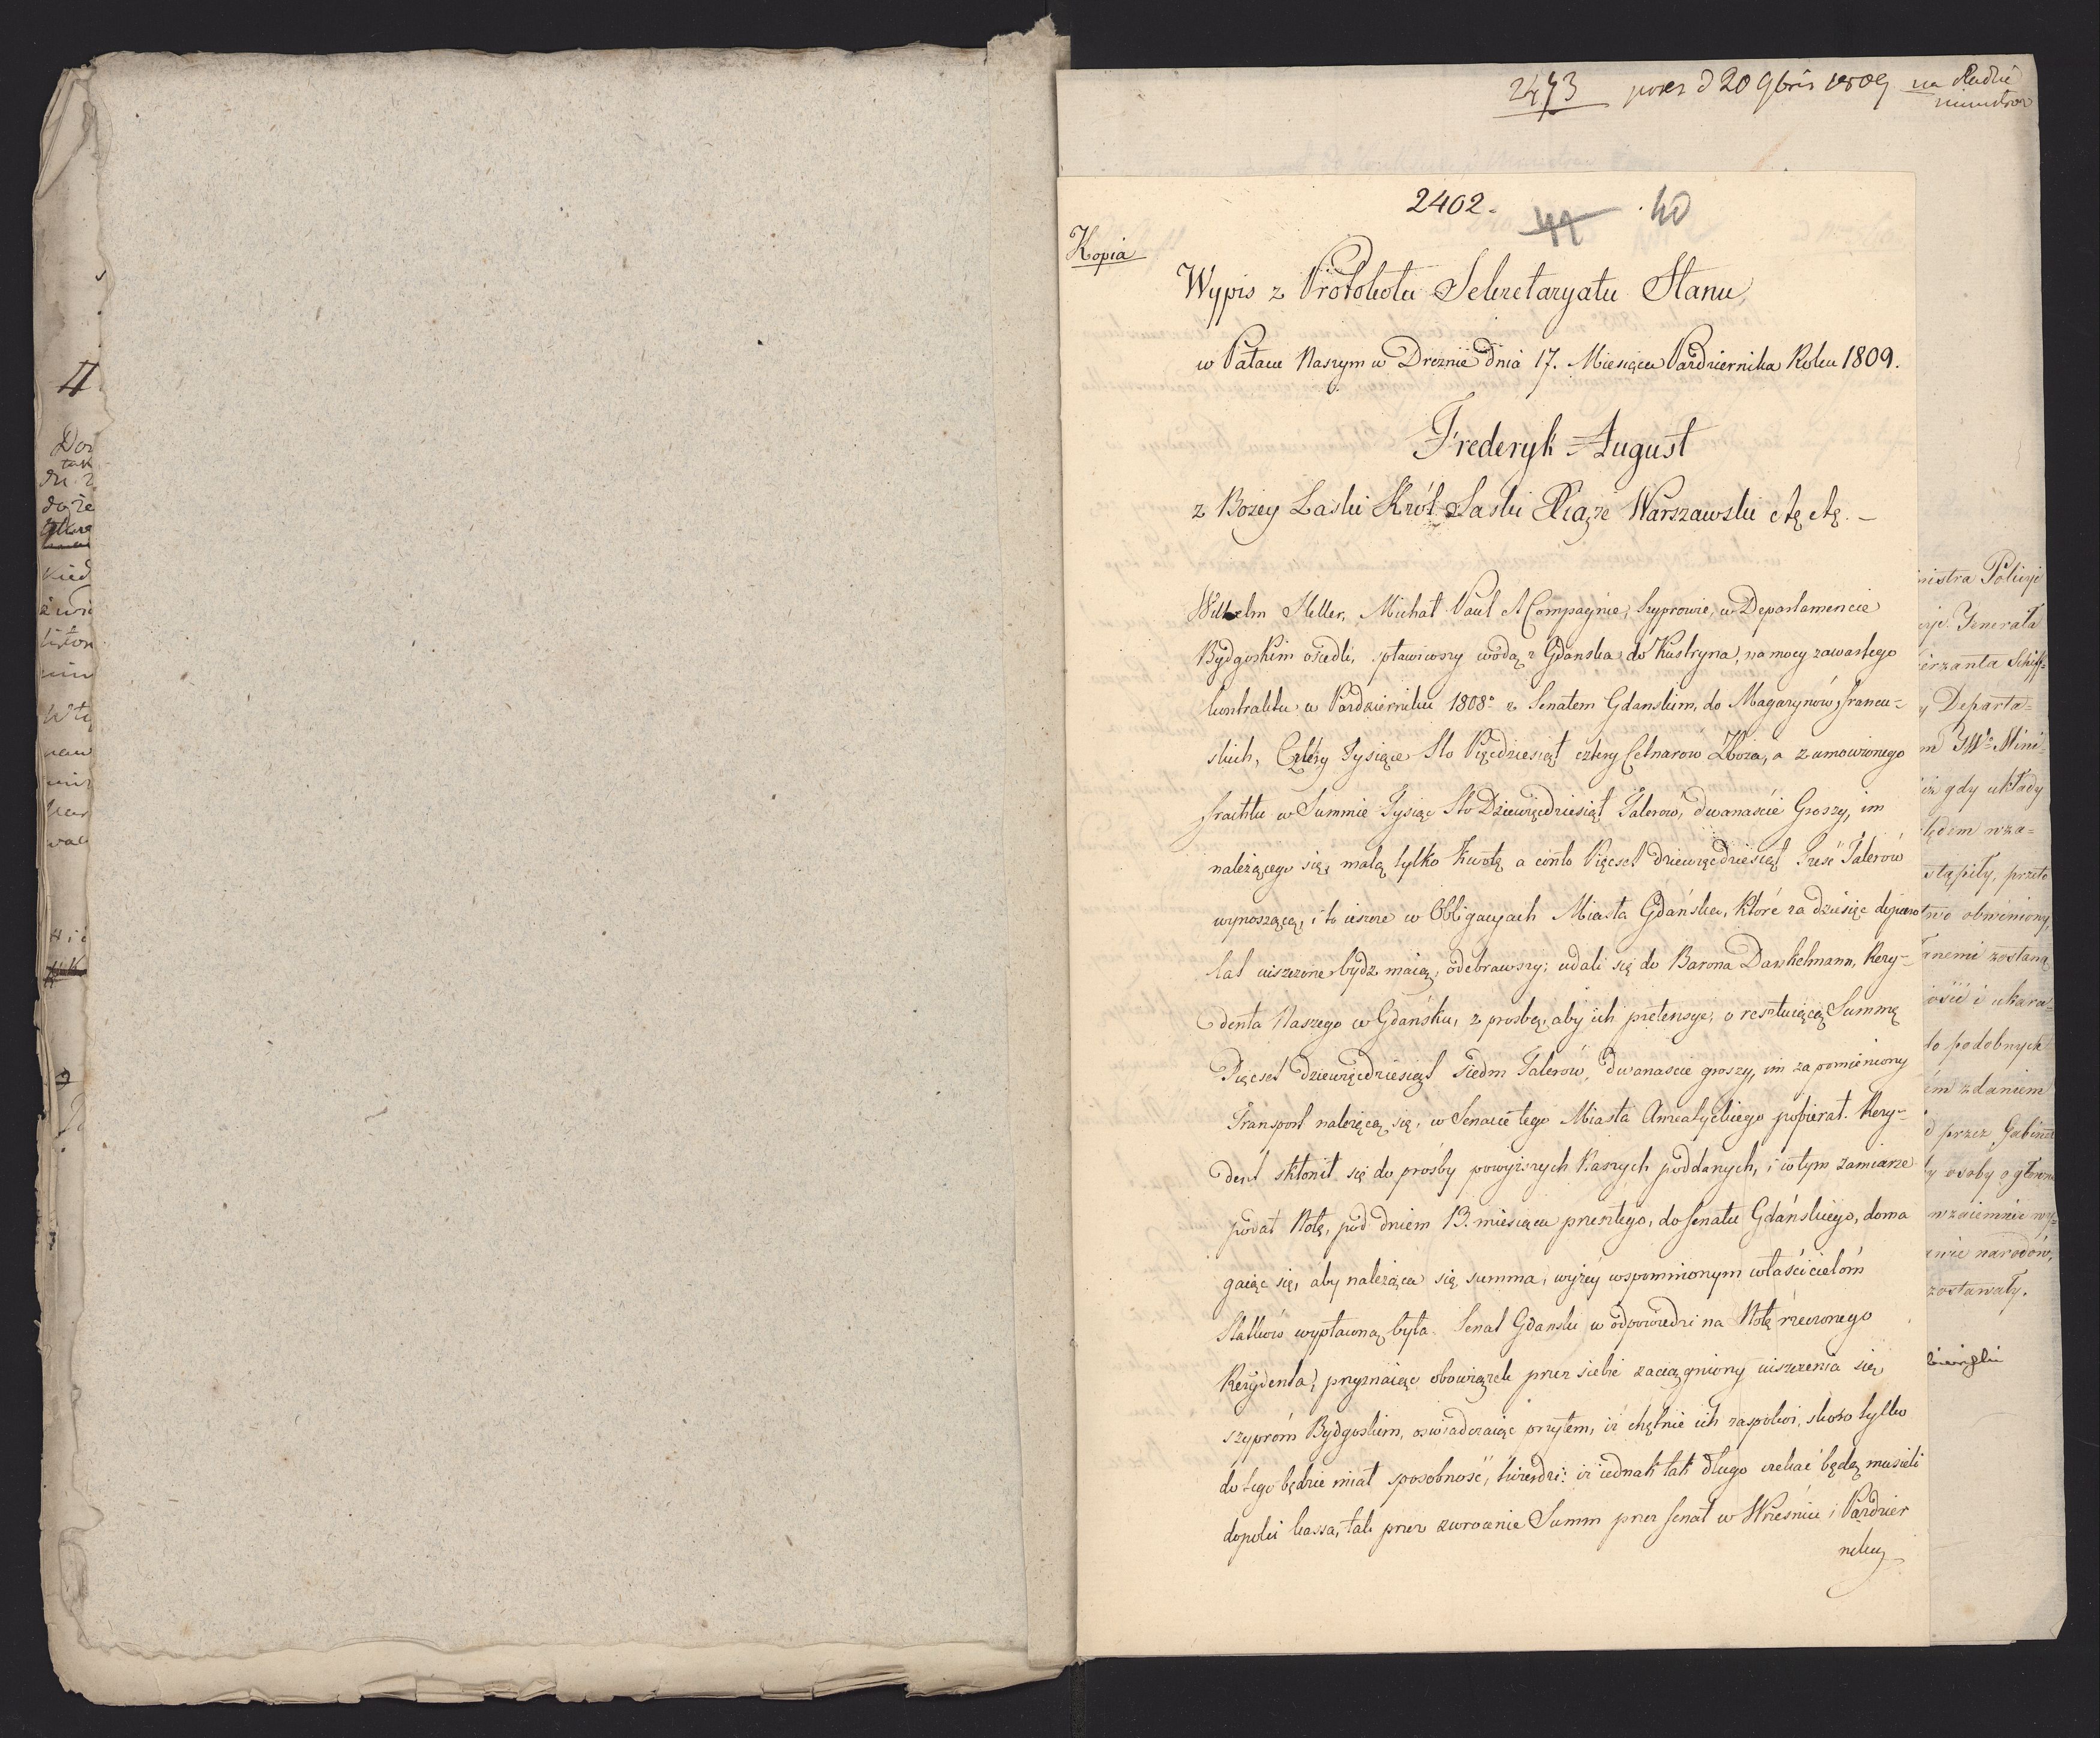 4
Do
tak
do że
Kied
2473 pres d 20 9bris 1809 na Radzie
ministrow
2402.
41 40
Kopia
Wypis z Protokołu Sekretaryatu Stanu
w Pałacu Naszym w Dreznie dnia 17. Miesiąca Pazdziernika Roku 1809.
Frederyk August
z Bożey Łaski Król Saski Xiąże Warszawski etc etc. —
Wilhelm Heller, Michał Paul et Compagnie, szyprowie, w Departamencie
Bydgoskim osiedli, spławiwszy wodą z Gdanska do Kustryna, na mocy zawartego
kontraktu w Pazdzierniku 1808o z Senatem Gdanskim, do Magazynów francu=
skich, Cztery Tysiące Sto Pięcdziesiąt cztery Cetnarów Zboża, a z umowionego
frachtu w Summie Tysiąc Sto Dziewięcdziesiąt Talerow, dwanaście Groszy, im
należącego się, małą tylko kwotę a conto Pięcset dziewięcdziesiąt Trzy Talerów
wynoszącą, i to ieszcze w Obligacyach Miasta Gdańska, które za dziesięc dopiero
lat uiszczone bydz maią, odebrawszy; udali się do Barona Dankelmann, Rezy=
denta Naszego w Gdańsku, z prosbą, aby ich pretensye, o resztuiącą Summę
Pięcset dziewięcdziesiąt siedm Talerów, dwanascie groszy, im za pomieniony
Transport należącą się, w Senacie tego Miasta Anzeatyckiego popierał. Rezy=
dent skłonił się do prośby powyższych Naszych poddanych, i w tym zamiarze
podał Notę, pod dniem 13. miesiąca przeszłego, do Senatu Gdańskiego, doma
gaiąc się, aby należąca się summa, wyżey wspomnionym właścicielóm
Statków wypłaconą była. Senat Gdanski w odpowiedzi na Notę rzeczonego
Rezydenta, przyznaiąc obowiązek przez siebie zaciągniony uiszczenia się
szypróm Bydgoskim, oswiadczaiąc przytem, iż chętnie ich zaspokoi, skoro tylko
do tego będzie miał sposobność, twierdzi: iż iednak tak długo czekać będą musieli
dopoki kassa, tak przez zwrocenie Summ przez Senat w Wrześniu i Pazdzier
niku
nistra Policyi
Generała
Schiff=
y Departa=
m JWo Mini=
iż gdy układy
wza=
stąpiły, przeto
two obwiniony,
anemi zostaną
ość i ukara=
do podobnych
em zdaniem
d przez Gabinet
y osoby o głowne
wzaiemnie wy=
anie narodów,
zostawały.